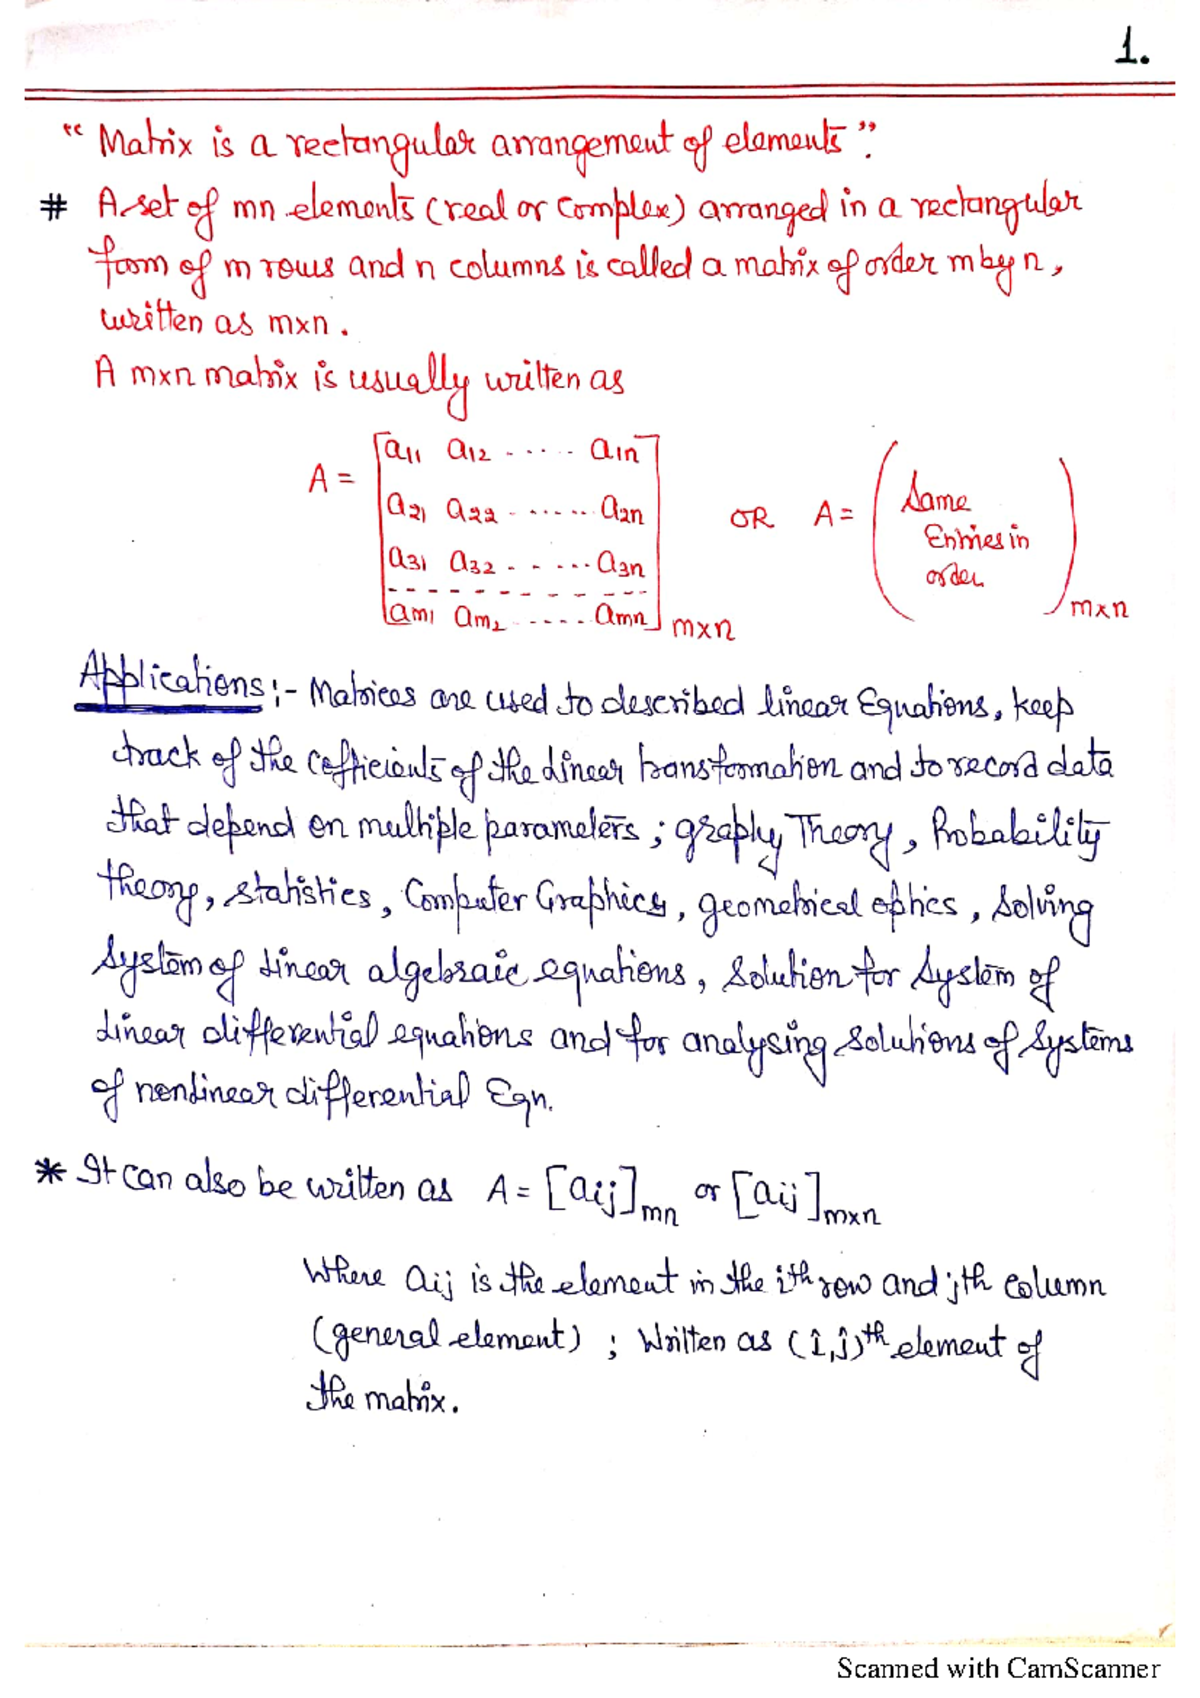 1.
“Matrix is a rectangular arrangement of elements”.
# A set of mn elements (real or complex) arranged in a rectangular
form of m rows and n columns is called a matrix of order m by n,
written as m×n.
A m×n matrix is usually written as
A = [a11 a12 ..... a1n
a21 a22 ...... a2n
a31 a32 ...... a3n
- - - - - - - - - -
am1 am2 ..... amn] m×n OR A = (Same Entries in order) m×n
Applications:- Matrices are used to described linear Equations, keep
track of the cofficients of the linear transformation and to record data
that depend on multiple parameters; graphy Theory, Probability
theory, statistics, Computer Graphics, geometrical optics, Solving
System of Linear algebraic equations, Solution for System of
Linear differential equations and for analysing solutions of Systems
of nonlinear differential Eqn.
* It can also be written as A = [aij]mn or [aij]m×n
Where aij is the element in the ith row and jth column
(general element) ; Written as (i,j)th element of
the matrix.
Scanned with CamScanner